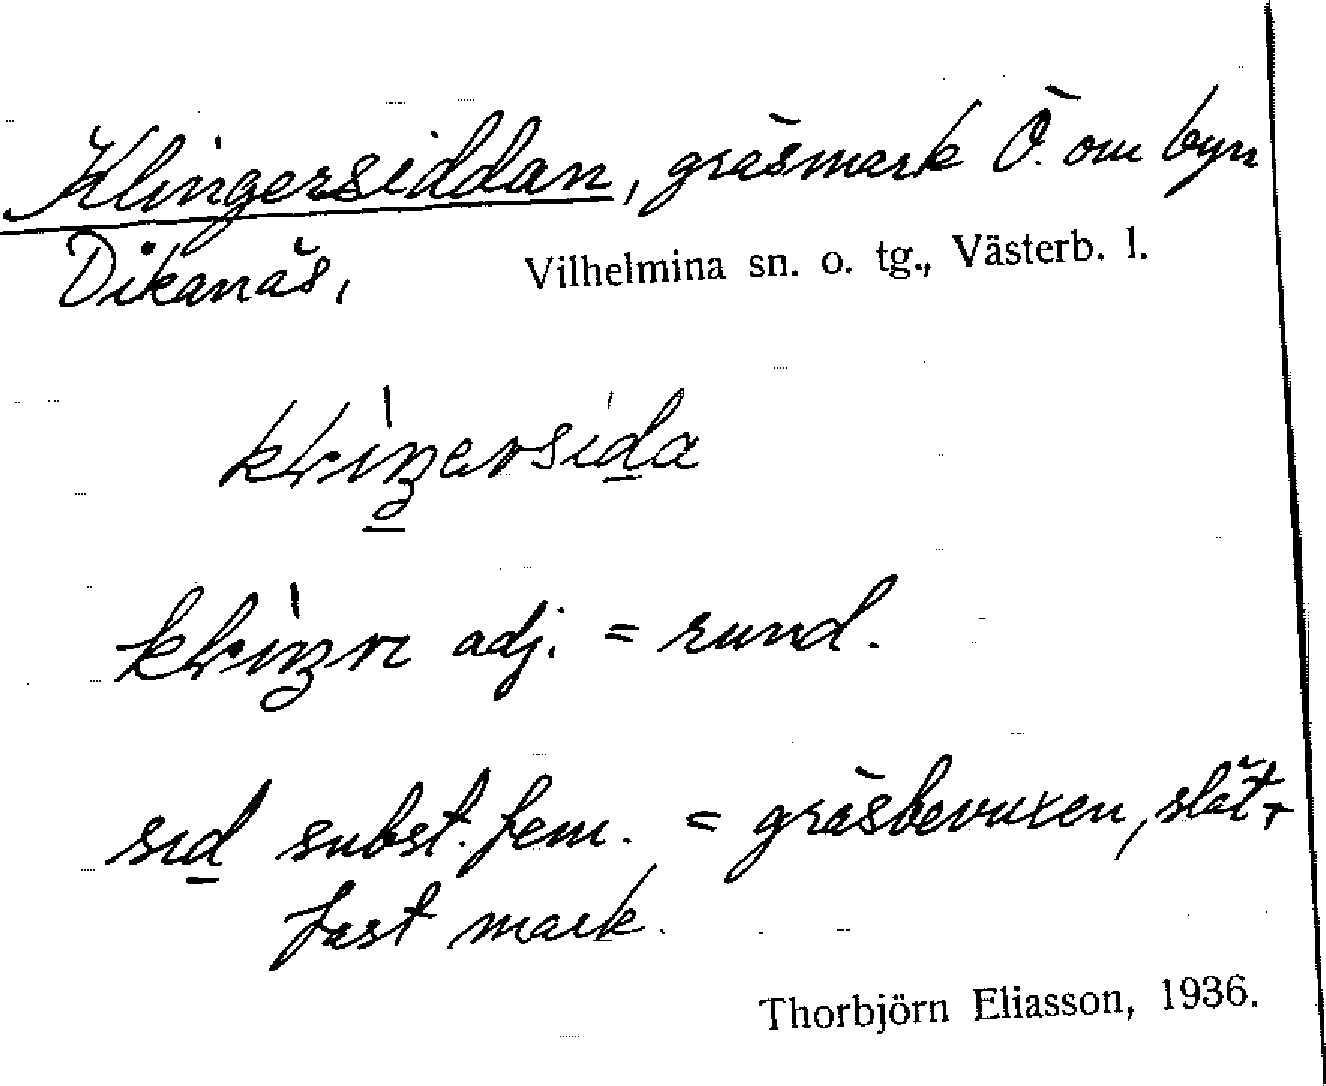 Klingersiddan, gräsmark Ö. om byn
Dikanäs, Vilhelmina sn. o. tg., Västerb. l.
adj. = rund.
sɪd subst. fem. = gräsbevuxen, slät,
fast mark.
Thorbjörn Eliasson, 1936.